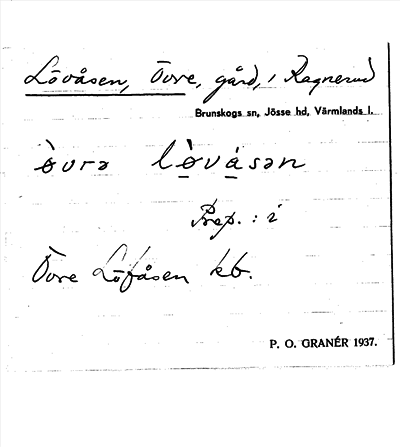 Lövåsen, Övre, gård, i Ragnerud
Brunskogs sn, Jösse hd, Värmlands l.
ø̀vrə lø̠̀vá̠sən
Prep. : i
Övre Löfåsen kb.
P. O. GRANÉR 1937.